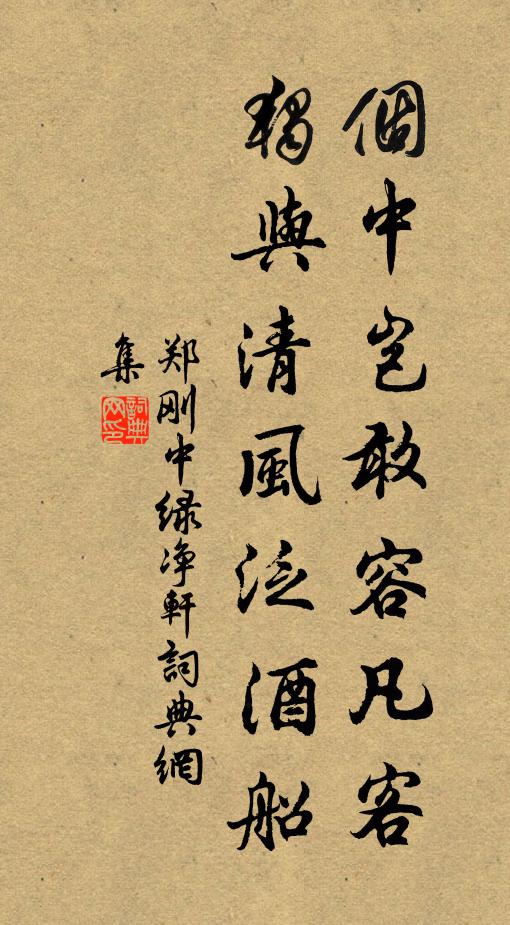 個中岂敢容凡客
獨與清風泛酒船
郑刚中绿净軒詞典網
集
詞典
网印